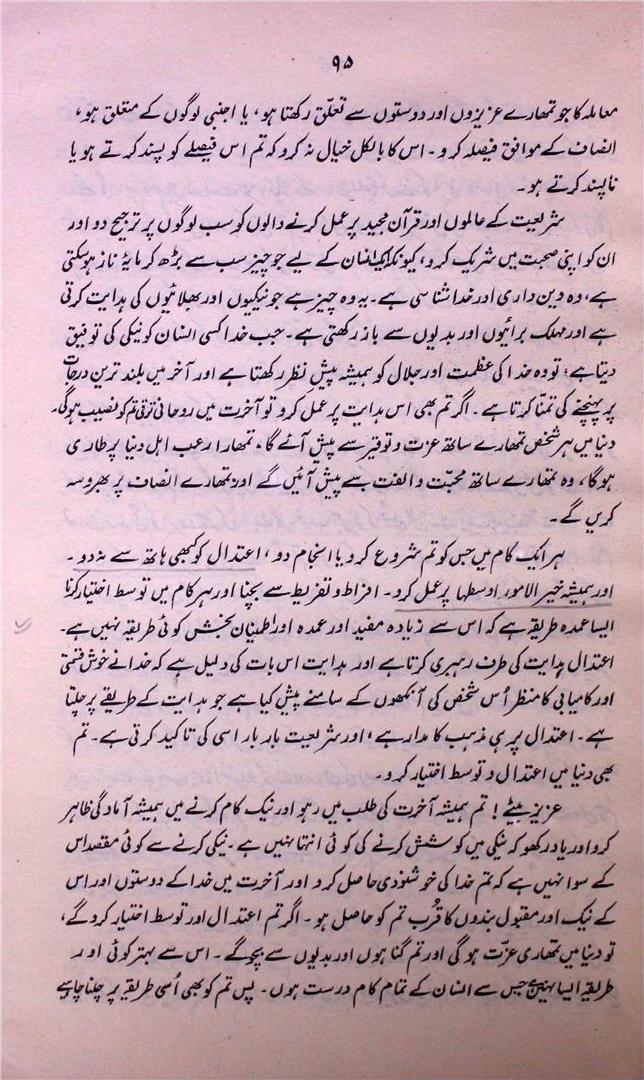 ۹۵
معاملہ کا جو تمھارے عزیزوں اور دوستوں سے تعلّق رکھتا ہو، یا اجنبی لوگوں کے متعلق ہو،
انصاف کے موافق فیصلہ کرو۔ اس کا بالکل خیال نہ کرو کہ تم اس فیصلے کو پسند کرتے ہو یا
ناپسند کرتے ہو۔
شریعت کے عالموں اور قرآن مجید پر عمل کرنے والوں کو سب لوگوں پر ترجیح دو اور
ان کو اپنی صحبت میں شریک کرو، کیونکہ ایک انسان کے لیے جو چیز سب سے بڑھ کر مایۂ ناز ہوسکتی
ہے، وہ دین داری اور خدا شناسی ہے۔ یہ وہ چیز ہے جو نیکیوں اور بھلائیوں کی ہدایت کرتی
ہے اور مہلک برائیوں اور بدیوں سے باز رکھتی ہے۔ جب خدا کسی انسان کو نیکی کی توفیق
دیتا ہے، تو وہ خدا کی عظمت اور جلال کو ہمیشہ پیش نظر رکھتا ہے اور آخر میں بلند ترین درجات
پر پہنچنے کی تمنّا کرتا ہے۔ اگر تم بھی اس ہدایت پر عمل کرو تو آخرت میں روحانی ترقی تم کو نصیب ہوگی۔
دنیا میں ہر شخص تمھارے ساتھ عزت و توقیر سے پیش آئے گا، تمھارا رعب اہل دنیا پر طاری
ہوگا، وہ تمھارے ساتھ محبّت و الفت سے پیش آئیں گے اور تمھارے انصاف پر بھروسہ
کریں گے۔
ہر ایک کام میں جس کو تم شروع کرو یا انجام دو، اعتدال کو کبھی ہاتھ سے نہ دو۔
اور ہمیشہ خیر الامور اوسطہا پر عمل کرو۔ افراط و تفریط سے بچنا اور ہر کام میں توسط اختیار کرنا
ایسا عمدہ طریقہ ہے کہ اس سے زیادہ مفید اور عمدہ اور اطمینان بخش کوئی طریقہ نہیں ہے۔
اعتدال ہدایت کی طرف رہبری کرتا ہے اور ہدایت اس بات کی دلیل ہے کہ خدا نے خوش قسمتی
اور کامیابی کا منظر اُس شخص کی آنکھوں کے سامنے پیش کیا ہے جو ہدایت کے طریقے پر چلتا
ہے۔ اعتدال پر ہی مذہب کا مدار ہے، اور شریعت بار بار اسی کی تاکید کرتی ہے۔ تم
بھی دنیا میں اعتدال و توسط اختیار کرو۔
عزیز بیٹے! تم ہمیشہ آخرت کی طلب میں رہو اور نیک کام کرنے میں ہمیشہ آمادگی ظاہر
کرو اور یاد رکھو کہ نیکی میں کوشش کرنے کی کوئی انتہا نہیں ہے۔ نیکی کرنے سے کوئی مقصد اس
کے سوا نہیں ہے کہ تم خدا کی خوشنودی حاصل کرو اور آخرت میں خدا کے دوستوں اور اس
کے نیک اور مقبول بندوں کا قُرب تم کو حاصل ہو۔ اگر تم اعتدال اور توسط اختیار کروگے،
تو دنیا میں تمھاری عزّت ہوگی اور تم گناہوں اور بدیوں سے بچوگے۔ اس سے بہتر کوئی اور
طریقہ ایسا نہیں ہے جس سے انسان کے تمام کام درست ہوں۔ پس تم کو بھی اُسی طریقے پر چلنا چاہیے